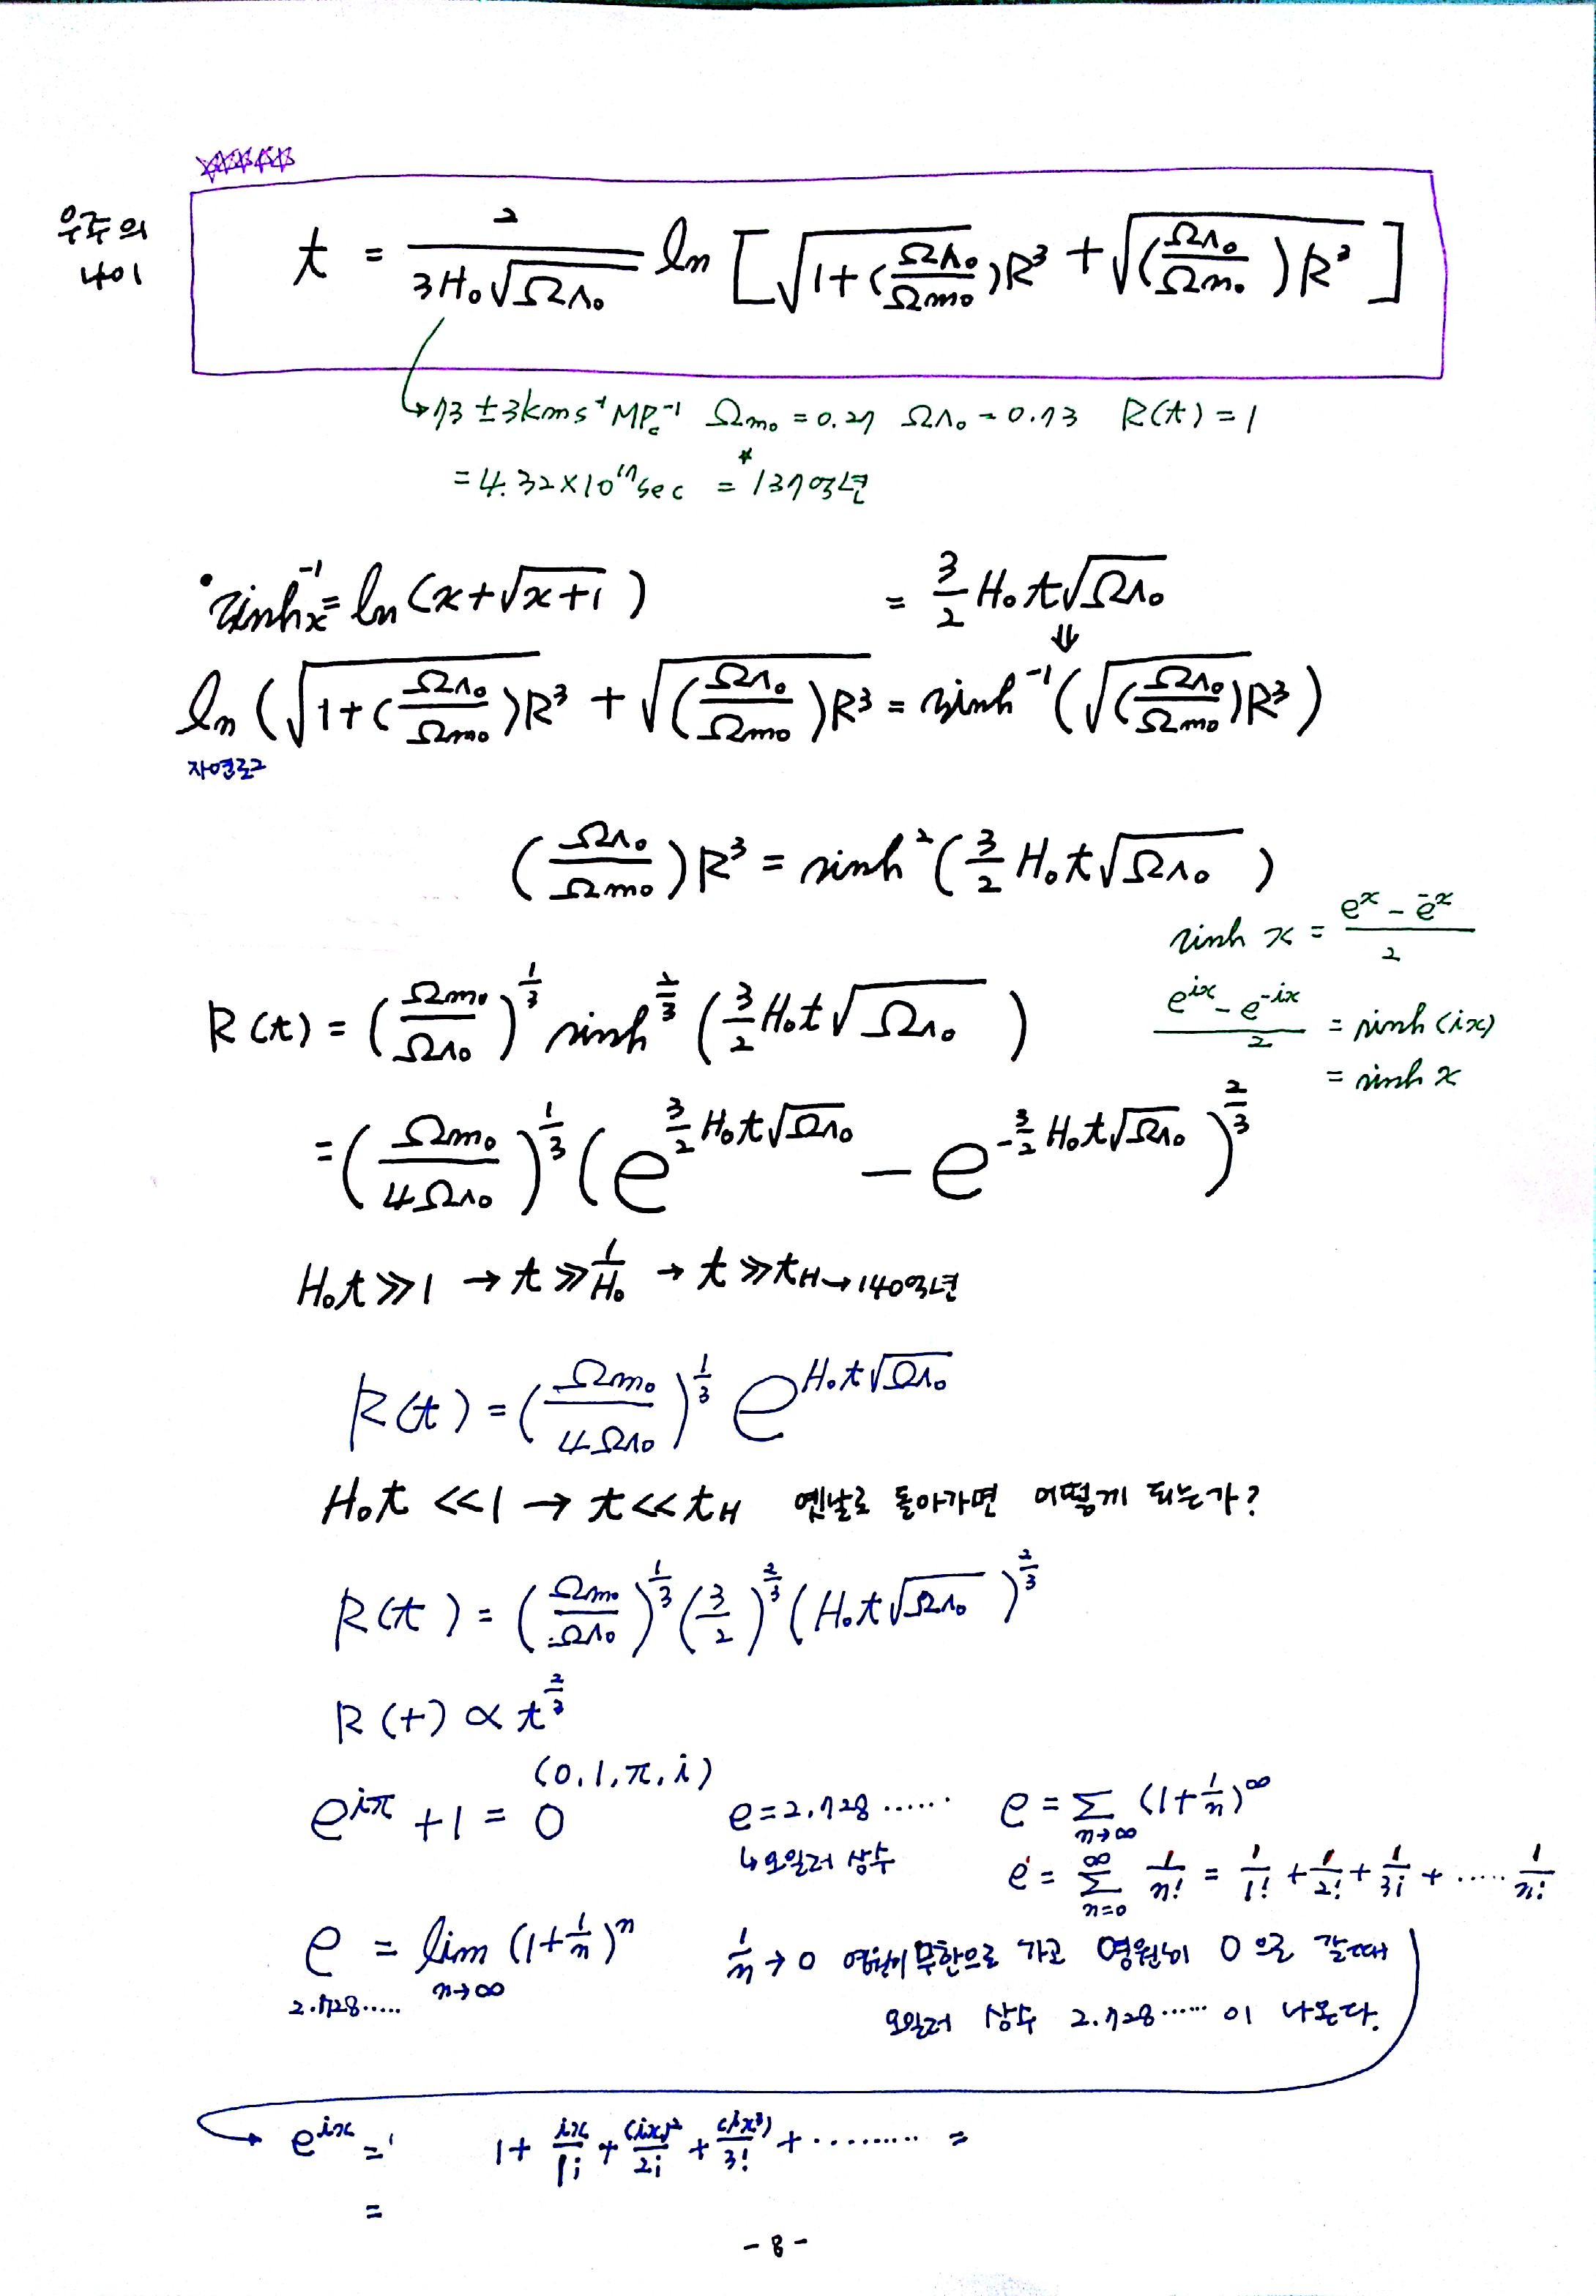 ☆☆☆☆☆
우주의 나이
t = 2/(3H₀√ΩΛ₀) ln [√(1+(ΩΛ₀/Ωm₀)R³) + √((ΩΛ₀/Ωm₀)R³)]
↳73 ± 3kms⁻¹ MPc⁻¹ Ωm₀ = 0.27 ΩΛ₀ = 0.73 R(t) = 1
= 4.32×10¹⁷sec = 137억년
• sinh⁻¹x = ln(x+√(x+1)) = 3/2 H₀t√ΩΛ₀
⇓
ln(√(1+(ΩΛ₀/Ωm₀)R³) + √((ΩΛ₀/Ωm₀)R³) = sinh⁻¹(√((ΩΛ₀/Ωm₀)R³))
자연로그
(ΩΛ₀/Ωm₀)R³ = sinh²(3/2 H₀t√ΩΛ₀)
sinh x = (eˣ - e⁻ˣ)/2
R(t) = (Ωm₀/ΩΛ₀)^(1/3) sinh^(2/3) (3/2 H₀t√ΩΛ₀)
(e^(ix) - e^(-ix))/2 = sinh(ix)
= sinh x
= (Ωm₀/4ΩΛ₀)^(1/3) (e^(3/2 H₀t√ΩΛ₀) - e^(-3/2 H₀t√ΩΛ₀))^(2/3)
H₀t ≫ 1 → t ≫ 1/H₀ → t ≫ tH → 140억년
R(t) = (Ωm₀/4ΩΛ₀)^(1/3) e^(H₀t√ΩΛ₀)
H₀t << 1 → t << tH 옛날로 돌아가면 어떻게 되는가?
R(t) = (Ωm₀/ΩΛ₀)^(1/3) (3/2)^(2/3) (H₀t√ΩΛ₀)^(2/3)
R(t) ∝ t^(2/3)
(0,1,π,i)
e^(iπ) + 1 = 0 e = 2.728 ...... e = Σ n→∞ (1+1/n)^∞
↳오일러 상수 e = Σ n=0 ∞ 1/n! = 1/1! + 1/2! + 1/3! + ..... 1/n!
e = lim n→∞ (1+1/n)ⁿ 1/n → 0 영원히 무한으로 가고 영원히 0으로 갈때
2.728..... 오일러 상수 2.728...... 이 나온다.
e^(ix) = 1 + ix/1! + (ix)²/2! + (ix³)/3! + ......... =
=
- 8 -